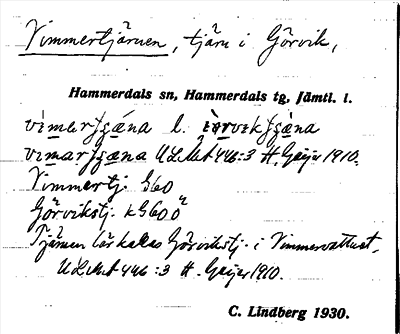 Vimmertjärnen, tjärn i Görvik,
Hammerdals sn, Hammerdals tg, Jämtl. l.
l.
ULMA 446:3 H. Geijer 1910.
Vimmertj. G60
Görvikstj. kG60Ö
Tjärnen bör kallas Görvikstj. i Vimmervattnet.
ULMA 446:3 H. Geijer 1910.
C. Lindberg 1930.